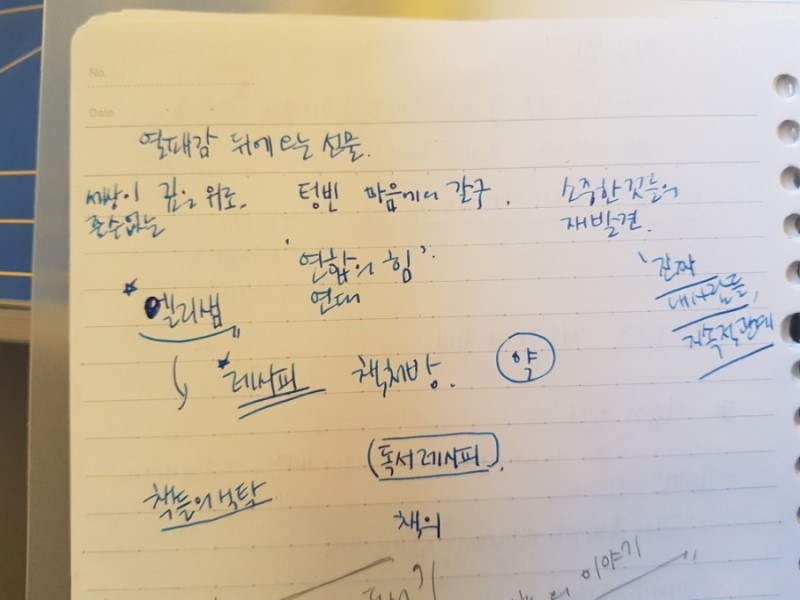 No.
Date
열패감 뒤에 오는 선물.
세상이 깊은 위로. 텅빈 마음에의 갈구. 소중한 것들의
줄수없는 재발견.
'연합의 힘'. '진짜
연대 내사람들,
엘리샘 지속적관계
레시피 책처방. 약
(독서레시피).
책들의 식탁
책의
이야기